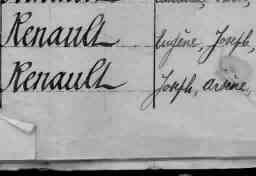 Renault Eugène, Joseph,
Renault Joseph, Arsène,